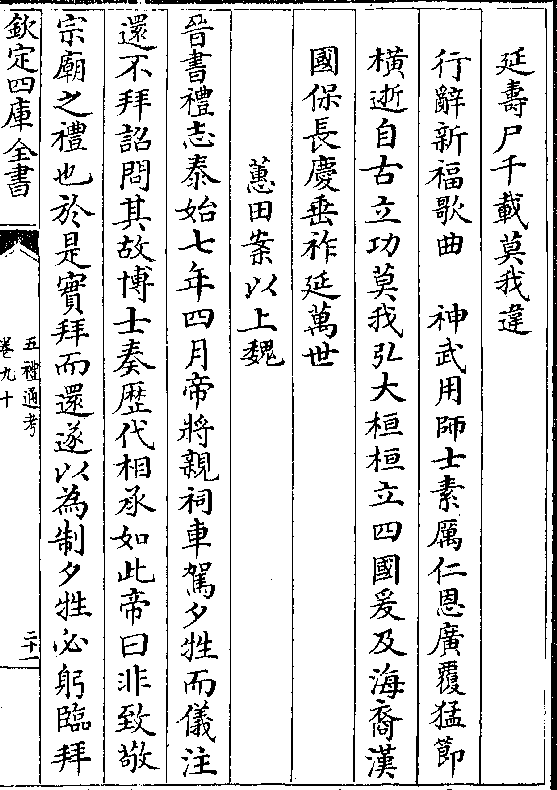 延壽尸千載莫我違
行辭新福歌曲　神武用師士素厲仁恩廣覆猛節
橫逝自古立功莫我弘大桓桓立四國爰及海裔漢
國保長慶垂祚延萬世
蕙田案以上魏
晉書禮志泰始七年四月帝將親祠車駕夕牲而儀注
還不拜詔問其故博士奏歴代相承如此帝曰非致敬
宗廟之禮也於是實拜而還遂以為制夕牲必躬臨拜
欽定四庫全書
五禮通考
卷九十
二十一